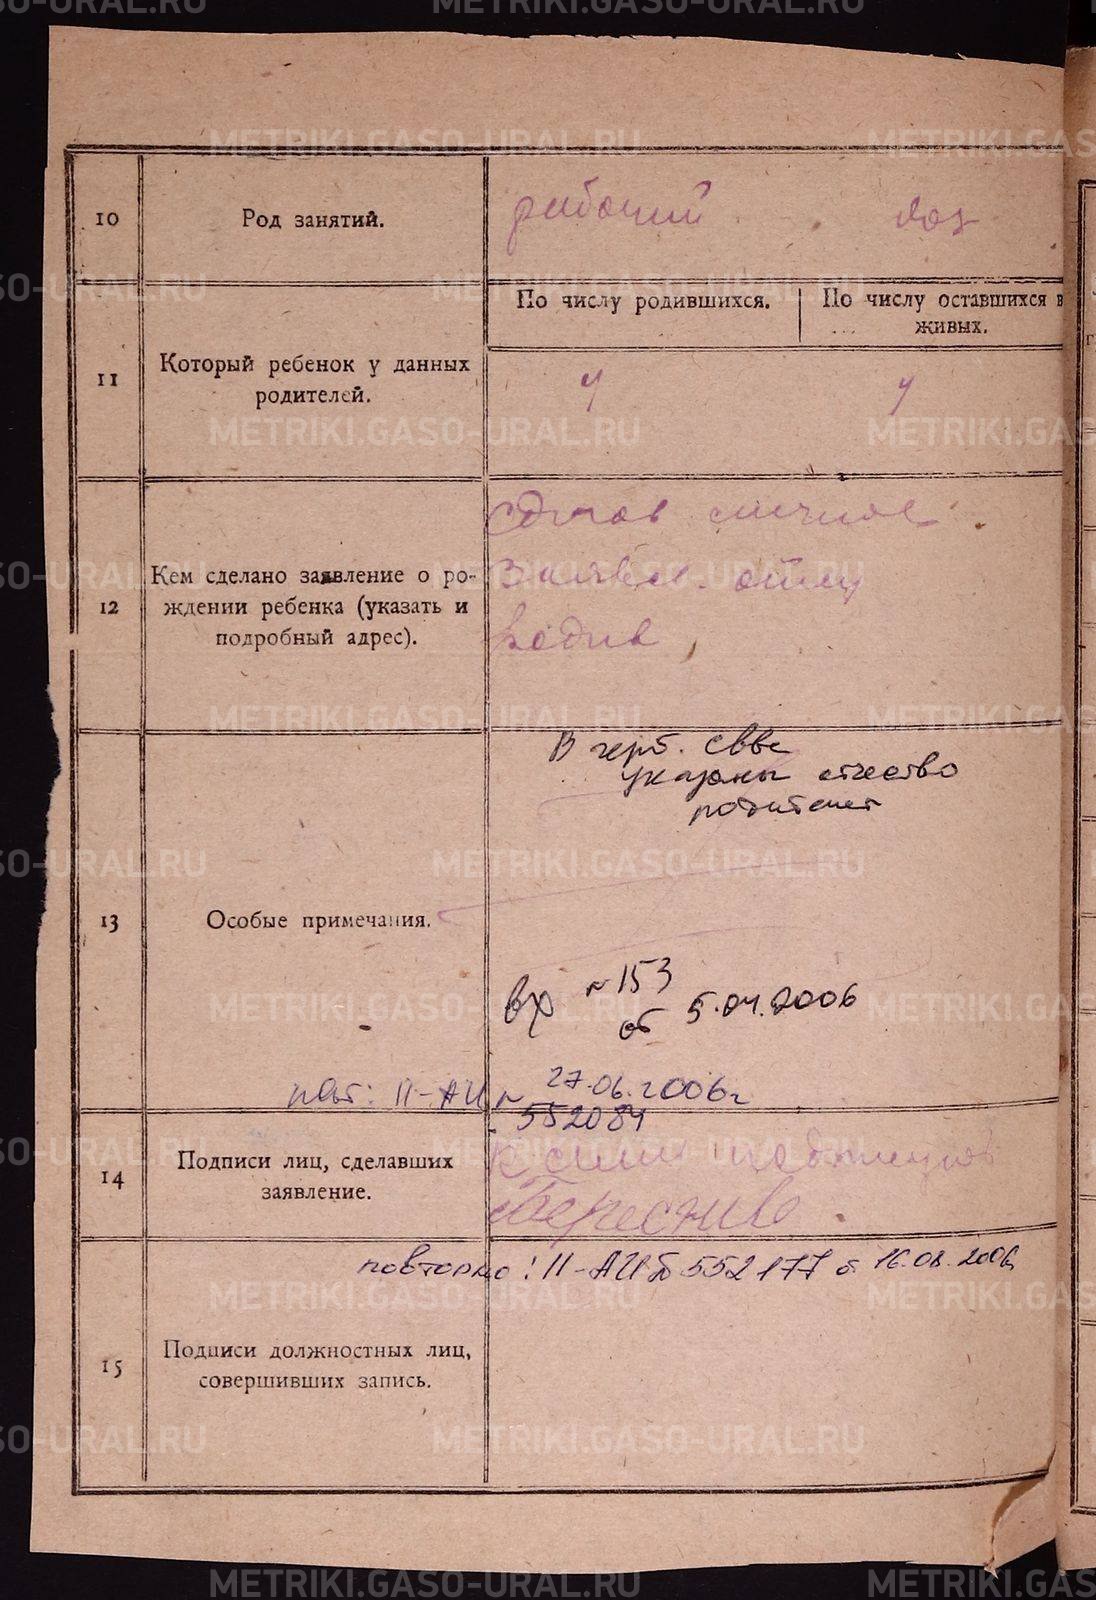 10
Род занятий.
рабочий
дох
По числу родившихся.
По числу оставшихся в живых.
11
Который ребенок у данных
родителей.
4
4
12
Кем сделано заявление о ро-
ждении ребенка (указать и
подробный адрес).
личное
Заявлен. отец
В черт. свве
указаны отчество
родителей
13
Особые примечания.
вх №153
от 5.04.2006
27.06.2006г
повт: II-АИ №
552084
14
Подписи лиц, сделавших
заявление.
К сему
повторно: II-АИ № 552177 от 16.08.2006
15
Подписи должностных лиц,
совершивших запись.
METRIKI.GASO-URAL.RU